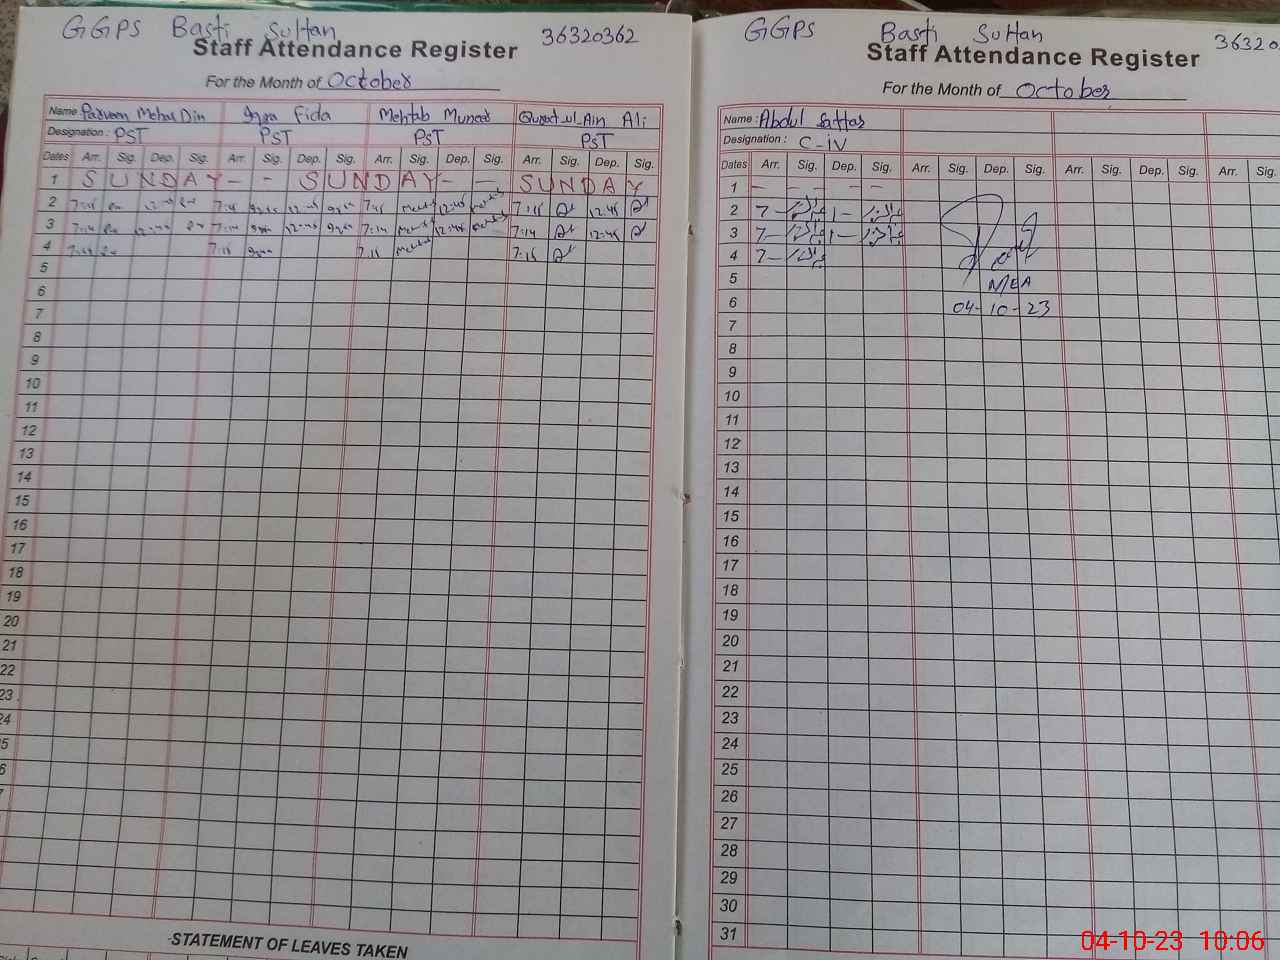 GGPS Basti Sultan 36320362
Staff Attendance Register
For the Month of October
Name: Parveen Mehar Din Iqra Fida Mehtab Muneer Qurat_ul_Ain Ali
Designation: PST PST PST PST
Dates Arr. Sig. Dep. Sig. Arr. Sig. Dep. Sig. Arr. Sig. Dep. Sig. Arr. Sig. Dep. Sig.
1 SUNDAY - - SUNDAY - - SUNDAY
2 7:15 12:45 7:15 12:45 7:15 12:45
3 7:14 12:45 7:14 12:45 7:14 12:45 7:14 12:45
4 7:15 7:15 7:15
5
6
7
8
9
10
11
12
13
14
15
16
17
18
19
20
21
22
23
24
5
6
7
STATEMENT OF LEAVES TAKEN
GGPS Basti Sultan 36320
Staff Attendance Register
For the Month of October
Name: Abdul Sattar
Designation: C-iv
Dates Arr. Sig. Dep. Sig. Arr. Sig. Dep. Sig. Arr. Sig. Dep. Sig. Arr. Sig.
1 - - - - -
2 7- 1-
3 7- 1-
4 7-
5 MEA
6 04-10-23
7
8
9
10
11
12
13
14
15
16
17
18
19
20
21
22
23
24
25
26
27
28
29
30
31
04-10-23 10:06